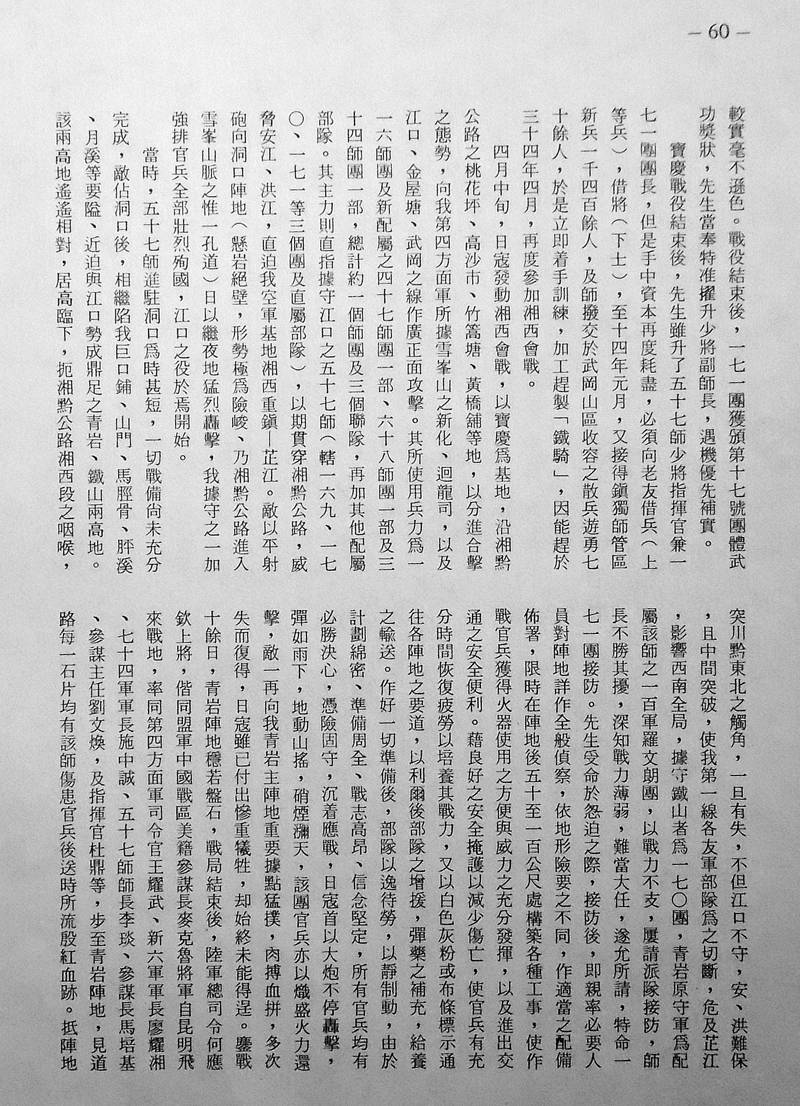 — 60 —
較實毫不遜色。戰役結束後，一七一團獲頒第十七號團體武
功獎狀，先生當奉特准擢升少將副師長，遇機優先補實。
寶慶戰役結束後，先生雖升了五十七師少將指揮官兼一
七一團團長，但是手中資本再度耗盡，必須向老友借兵（上
等兵），借將（下士），至十四年元月，又接得鎭獨師管區
新兵一千四百餘人，及師撥交於武岡山區收容之散兵遊勇七
十餘人，於是立即着手訓練，加工趕製「鐵騎」，因能趕於
三十四年四月，再度參加湘西會戰。
四月中旬，日寇發動湘西會戰，以寶慶爲基地，沿湘黔
公路之桃花坪、高沙市、竹篙塘、黃橋舖等地，以分進合擊
之態勢，向我第四方面軍所據雪峯山之新化、迴龍司，以及
江口、金屋塘、武岡之線作廣正面攻擊。其所使用兵力爲一
一六師團及新配屬之四十七師團一部、六十八師團一部及三
十四師團一部，總計約一個師團及三個聯隊，再加其他配屬
部隊。其主力則直指據守江口之五十七師（轄一六九、一七
〇、一七一等三個團及直屬部隊），以期貫穿湘黔公路，威
脅安江、洪江，直迫我空軍基地湘西重鎭—芷江。敵以平射
砲向洞口陣地（懸岩絕壁，形勢極爲險峻、乃湘黔公路進入
雪峯山脈之惟一孔道）日以繼夜地猛烈轟擊，我據守之一加
強排官兵全部壯烈殉國，江口之役於焉開始。
當時，五十七師進駐洞口爲時甚短，一切戰備尚未充分
完成，敵佔洞口後，相繼陷我巨口鋪、山門、馬脛骨、胖溪
、月溪等要隘、近迫與江口勢成鼎足之青岩、鐵山兩高地。
該兩高地遙遙相對，居高臨下，扼湘黔公路湘西段之咽喉，
突川黔東北之觸角，一旦有失，不但江口不守，安、洪難保
，且中間突破，使我第一線各友軍部隊爲之切斷，危及芷江
，影響西南全局，據守鐵山者爲一七〇團，青岩原守軍爲配
屬該師之一百軍羅文朗團，以戰力不支，屢請派隊接防，師
長不勝其擾，深知戰力薄弱，難當大任，遂允所請，特命一
七一團接防。先生受命於怱迫之際，接防後，即親率必要人
員對陣地詳作全般偵察，依地形險要之不同，作適當之配備
佈署，限時在陣地後五十至一百公尺處構築各種工事，使作
戰官兵獲得火器使用之方便與威力之充分發揮，以及進出交
通之安全便利。藉良好之安全掩護以減少傷亡，使官兵有充
分時間恢復疲勞以培養其戰力，又以白色灰粉或布條標示通
往各陣地之要道，以利爾後部隊之增援，彈藥之補充，給養
之輸送。作好一切準備後，部隊以逸待勞，以靜制動，由於
計劃綿密、準備周全、戰志高昂、信念堅定，所有官兵均有
必勝決心，憑險固守，沉着應戰，日寇首以大炮不停轟擊，
彈如雨下，地動山搖，硝煙瀰天，該團官兵亦以熾盛火力還
擊，敵一再向我青岩主陣地重要據點猛撲，肉搏血拼，多次
失而復得，日寇雖已付出慘重犧牲，却始終未能得逞。鏖戰
十餘日，青岩陣地穩若盤石，戰局結束後，陸軍總司令何應
欽上將，偕同盟軍中國戰區美籍參謀長麥克魯將軍自昆明飛
來戰地，率同第四方面軍司令官王耀武、新六軍軍長廖耀湘
、七十四軍軍長施中誠、五十七師師長李琰、參謀長馬培基
、參謀主任劉文煥，及指揮官杜鼎等，步至青岩陣地，見道
路每一石片均有該師傷患官兵後送時所流殷紅血跡。抵陣地